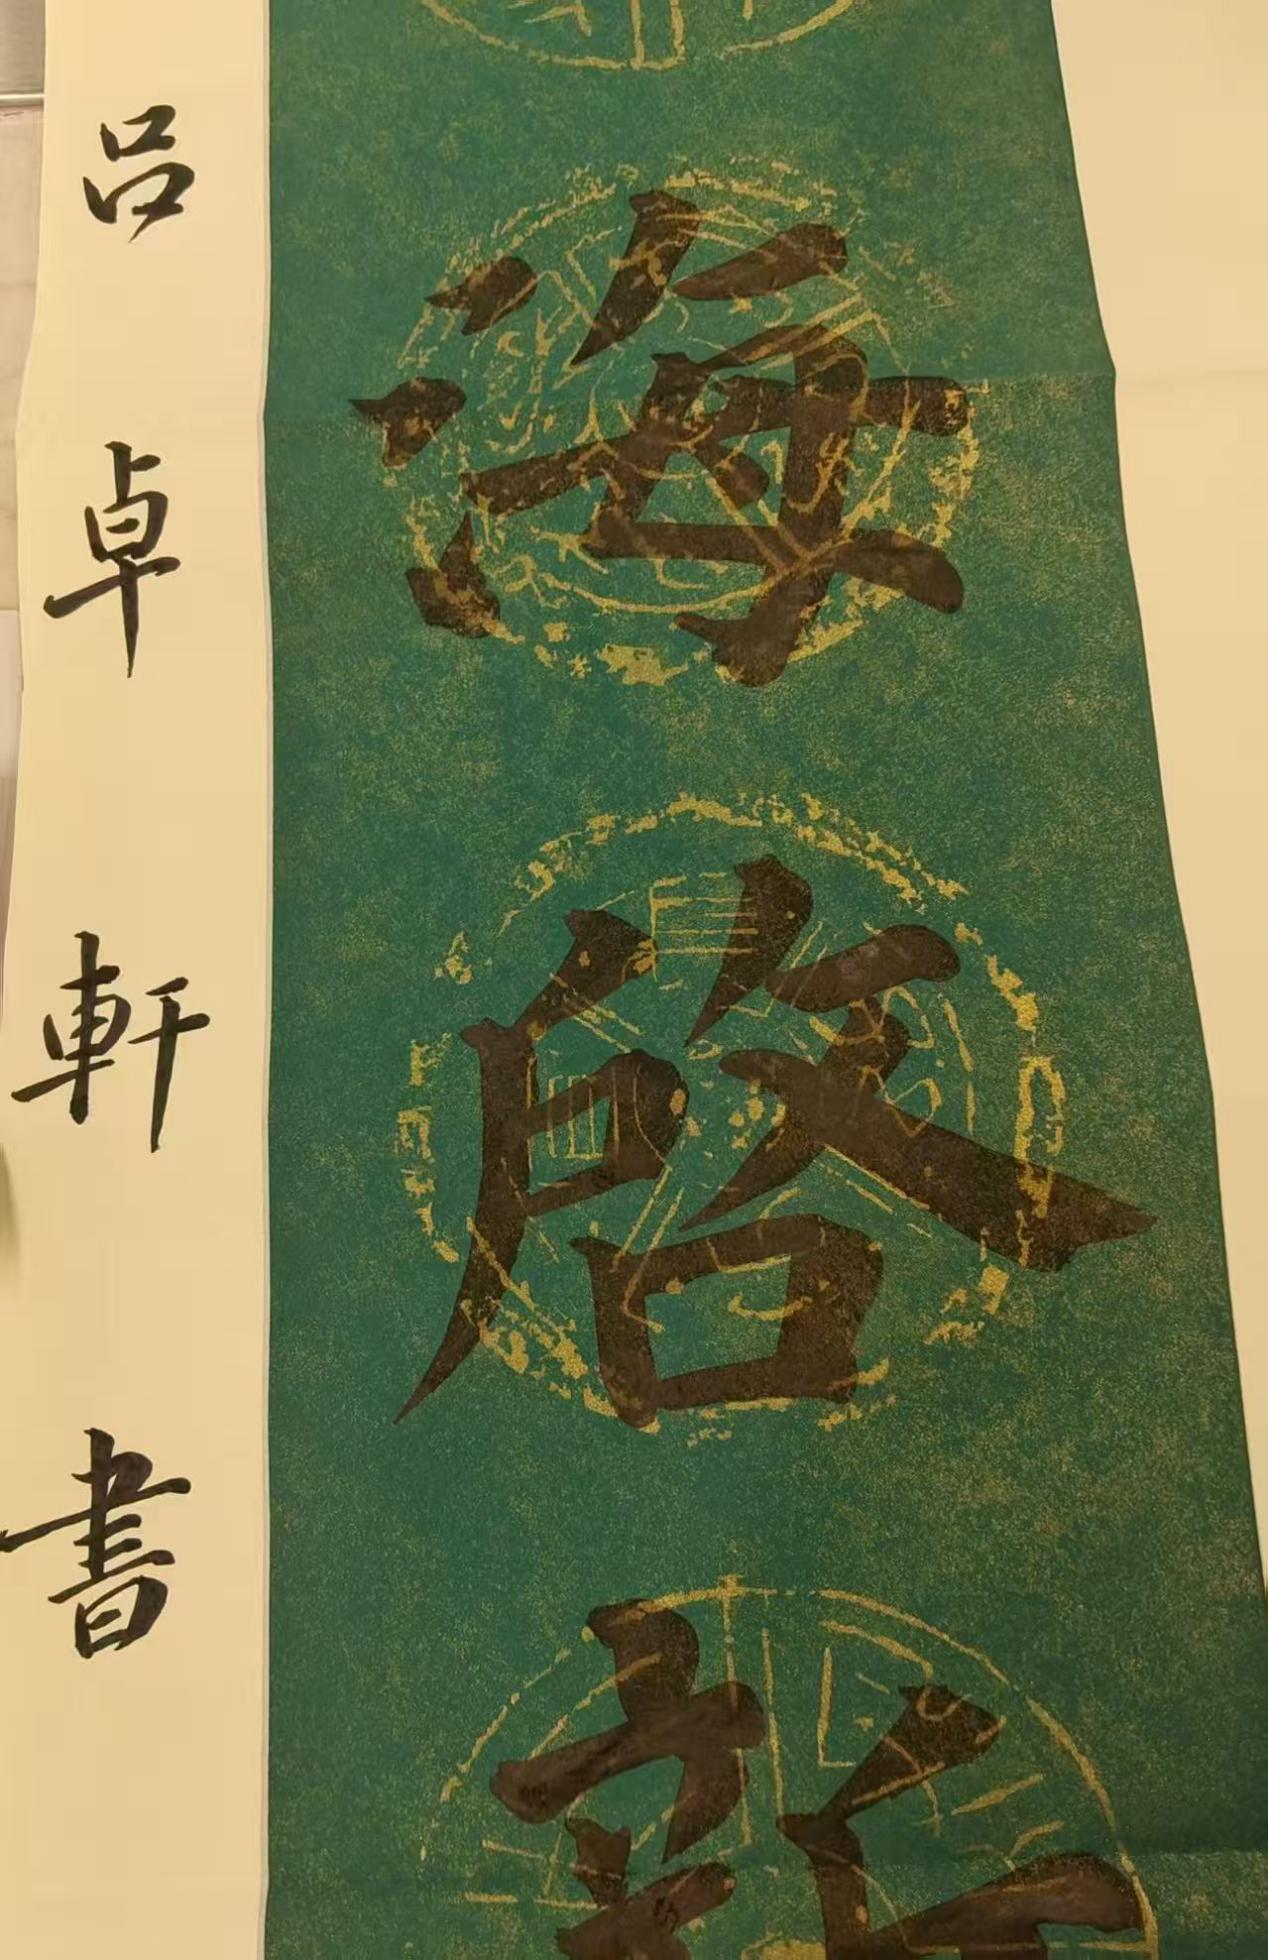 海啓新
吕卓軒書